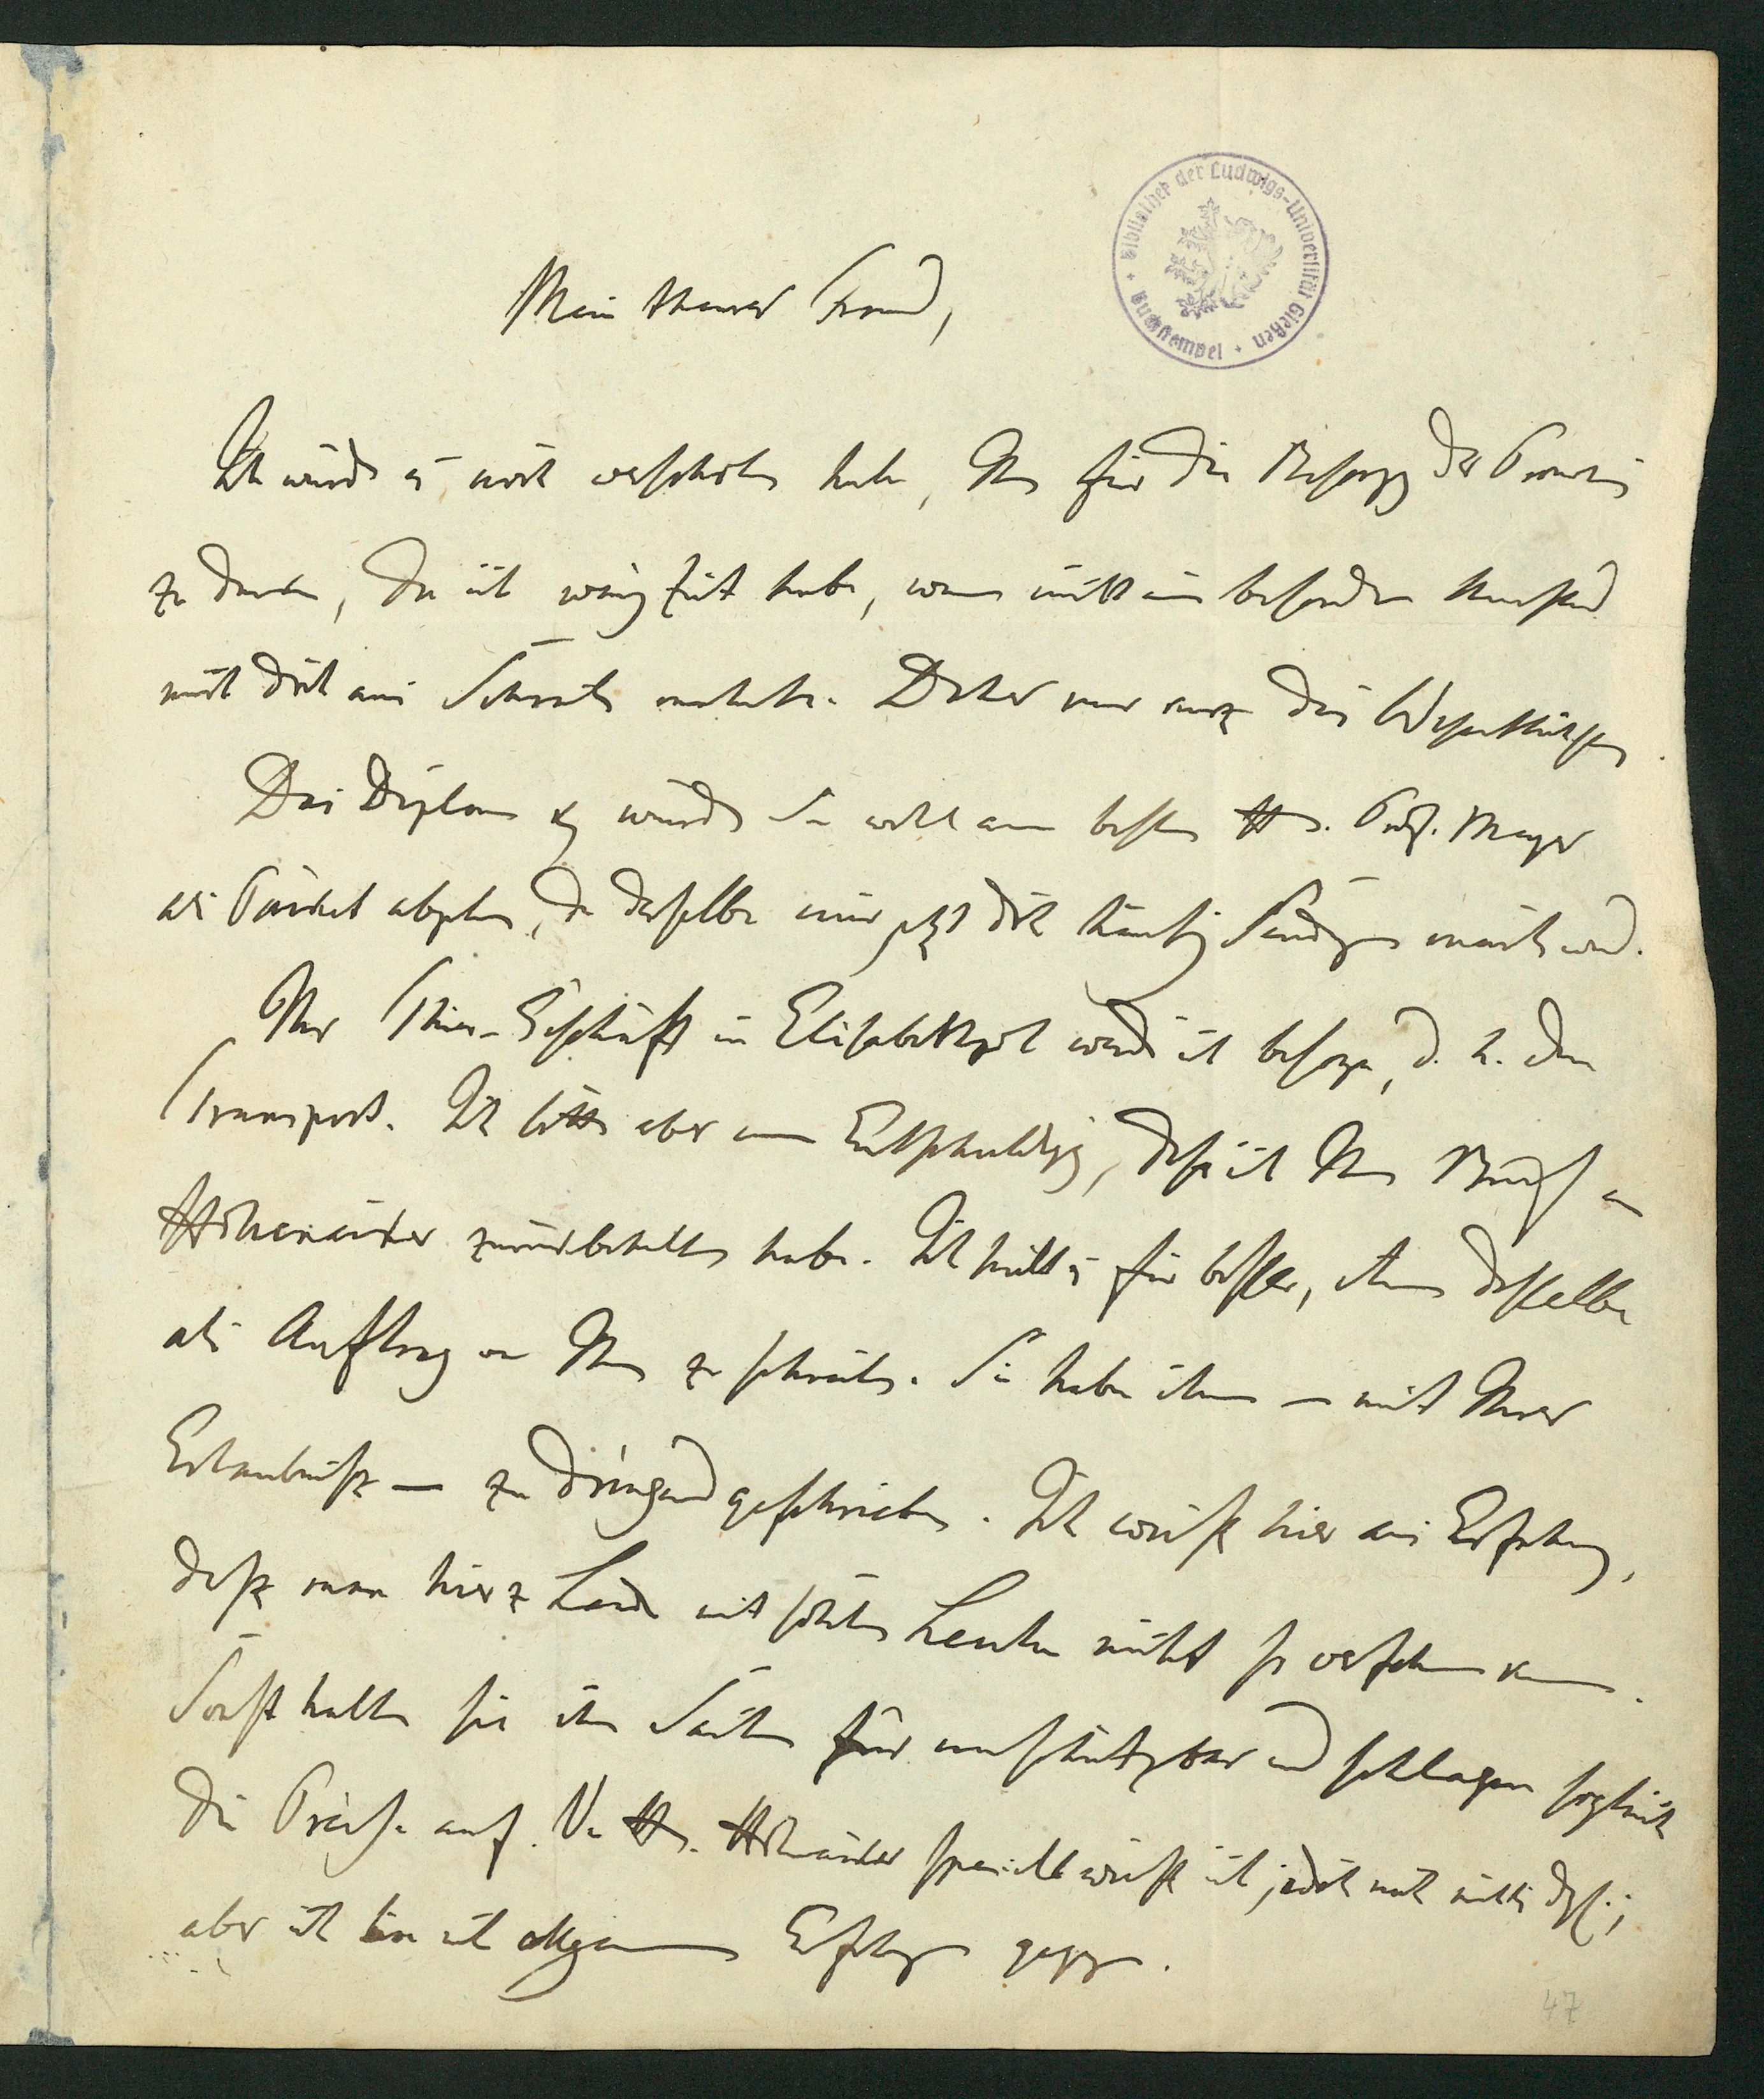 Bibliothek der Ludwigs-Universität Gießen + Buchstempel +
Mein theurer Freund,
Ich würde es noch verschoben haben, Ihnen für die Besorgg der
zu danken, da ich wenig Zeit habe, wenn nicht ein besonderer Umstand
mich doch ans Schreiben mahnte. Daher nur kurz das Wesentlichste.
Das Diplom würden Sie wohl am besten Hn. Prof. Mayer
als Packet abgeben, da derselbe mir jetzt doch häufig Sendgen machen wird.
Ihr Geschäft in Elisabethpol werde ich besorgen, d. h. den
Transport. Ich bitte aber um Entschuldigg, daß ich Ihren Brief an
Hohenacker zurückbehalten habe. Ich hielt es für besser, ihm dasselbe
als Auftrag von Ihnen zu schreiben. Sie haben ihm — mit Ihrer
Erlaubniß — zu dringend geschrieben. Ich weiß hier aus Erfahrung,
daß man hier z Lande mit solchen Leuten nicht so verfahren kann.
Sonst halten sie ihre Sachen für unschätzbar und schlagen sogleich
die Preise auf. Von Hn. Hohenacker speciell weiß ich jedoch noch nichts dgl.;
aber ich bin allgemeinen Erfahrgen gegangen.
47